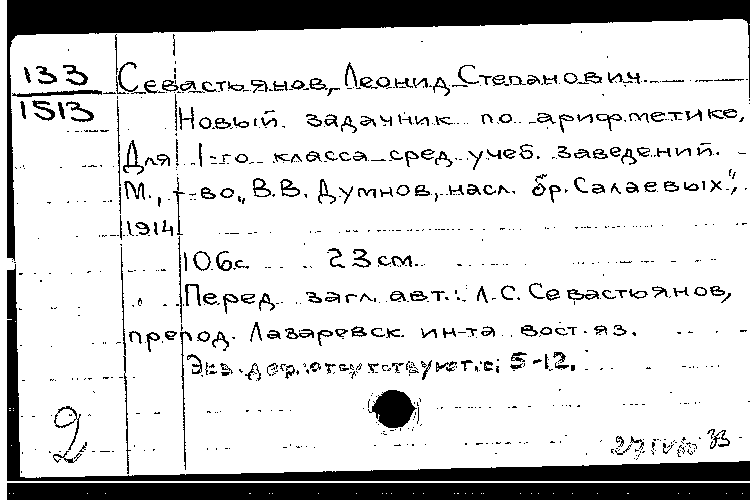 133
1513
Севастьянов, Леонид Степанович.
Новый задачник по арифметике.
Для 1-го класса сред. учеб. заведений.
М., т-во „В.В. Думнов, насл. бр. Салаевых",
1914
106с. 23 см.
Перед загл. авт.: Л.С. Севастьянов,
препод. Лазаревск. ин-та вост. яз.
Экз. деф.: отсутствуют с. 5-12.
2
33